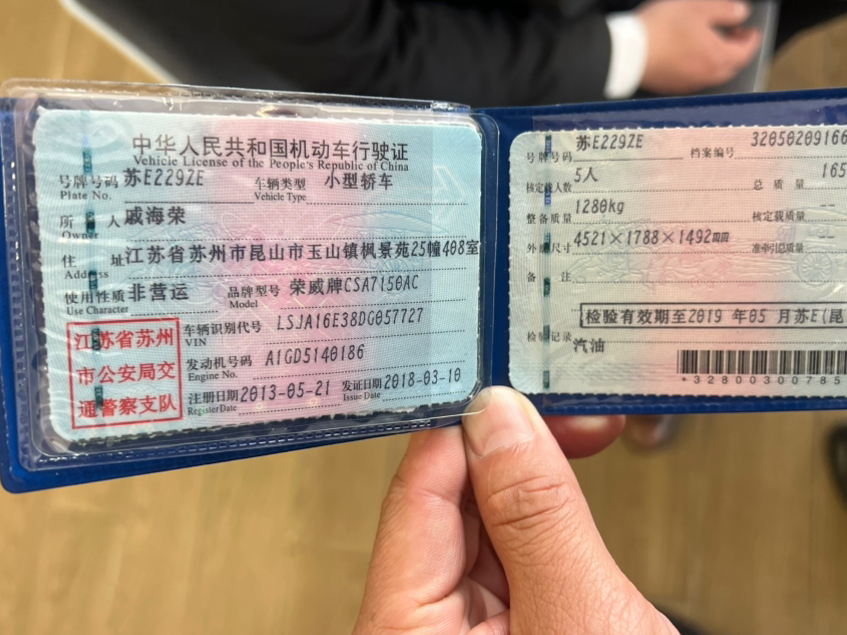 中华人民共和国机动车行驶证
Vehicle License of the People's Republic of China
号牌号码 苏E229ZE 车辆类型 小型轿车
Plate No. Vehicle Type
所 人 戚海荣
Owner
住 址 江苏省苏州市昆山市玉山镇枫景苑25幢408室
Address
使用性质 非营运 品牌型号 荣威牌CSA7150AC
Use Character Model
江苏省苏州
市公安局交
通警察支队
车辆识别代号 LSJA16E38DG057727
VIN
发动机号码 A1GD5140186
Engine No.
注册日期 2013-05-21 发证日期 2018-03-10
Register Date Issue Date
号牌号码 苏E229ZE 档案编号 32050209166
核定载人数 5人 总质量 165
整备质量 1280kg 核定载质量 --
外廓尺寸 4521×1788×1492mm 准牵引总质量 --
备 注
检验有效期至2019 年05 月苏E(昆
检验记录
汽油
*32800300785